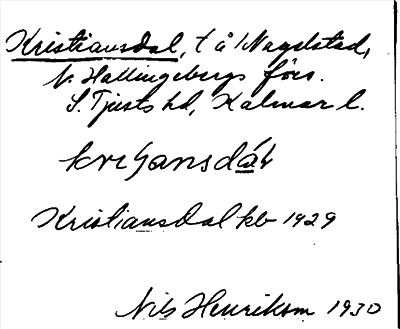 Kristiansdal, t å 1 Nagelstad,
V. Hallingebergs förs.
S. Tjusts hd, Kalmar l.
Kristiansdal kb 1929
Nils Henrikson 1930